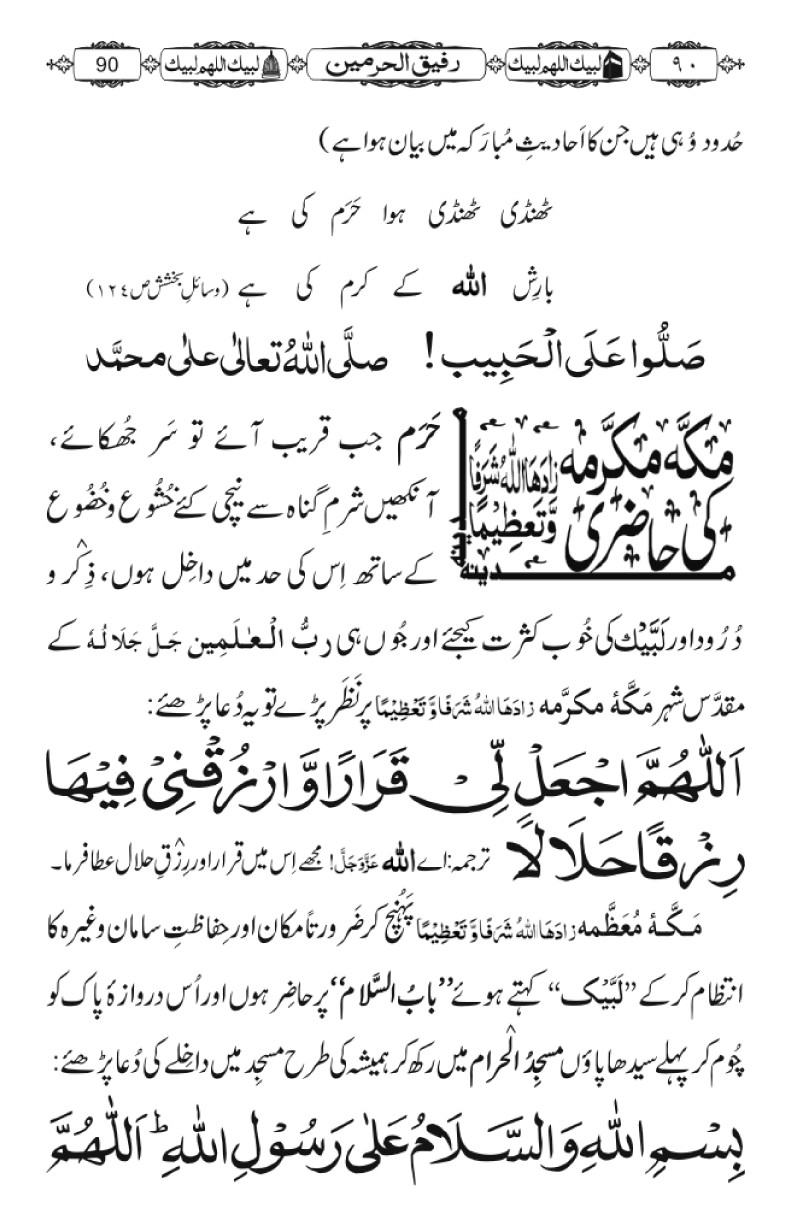 ٩٠ لبيك اللهم لبيك رفيق الحرمين لبيك اللهم لبيك 90
حُدود وُہی ہیں جن کا اَحادیثِ مُبارَکہ میں بیان ہوا ہے)
ٹھنڈی ٹھنڈی ہوا حَرَم کی ہے
بارِش الله کے کرم کی ہے (وسائلِ بخشش ص١٢٤)
صَلُّوا عَلَى الْحَبِيب! صلَّى اللهُ تعالٰى علٰى محمَّد
مکّہ مکرّمہ زادَهَا اللهُ شَرَفًا وَّتَعظِیْمًا کی حاضری
حَرَم جب قریب آئے تو سَر جُھکائے،
آنکھیں شرمِ گناہ سے نیچی کئے خُشُوع و خُضُوع
کے ساتھ اِس کی حد میں داخِل ہوں، ذِکْر و
دُرُود اور لَبَّیْك کی خُوب کثرت کیجئے اور جُوں ہی ربُّ الْعٰلَمِین جَلَّ جَلَالُہٗ کے
مقدَّس شہر مَکَّۂ مکرَّمہ زادَهَا اللهُ شَرَفًا وَّ تَعْظِیْمًا پر نَظَر پڑے تو یہ دُعا پڑھئے:
اَللّٰهُمَّ اجْعَلْ لِّیْ قَرَارًا وَّارْزُقْنِیْ فِیْهَا
رِزْقًا حَلَالًا ترجمہ: اے الله عَزَّوَجَلَّ! مجھے اِس میں قرار اور رِزْقِ حلال عطا فرما۔
مَکَّۂ مُعَظَّمہ زادَهَا اللهُ شَرَفًا وَّ تَعْظِیْمًا پَہُنچ کر ضَرورتاً مکان اور حِفاظتِ سامان وغیرہ کا
انتظام کر کے ”لَبَّیْک“ کہتے ہوئے ”بابُ السَّلام“ پر حاضِر ہوں اور اُس دروازۂ پاک کو
چُوم کر پہلے سیدھا پاؤں مسجدُ الْحرام میں رکھ کر ہمیشہ کی طرح مسجِد میں داخلے کی دُعا پڑھئے:
بِسْمِ اللهِ وَالسَّلَامُ عَلٰى رَسُوْلِ اللهِ ؕ اَللّٰهُمَّ